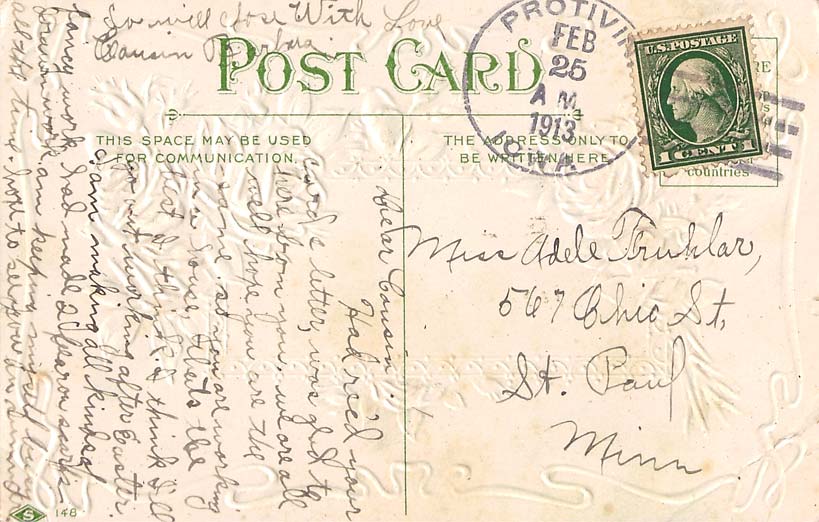 So will close With Love
Cousin Barbara
POST CARD
THIS SPACE MAY BE USED
FOR COMMUNICATION.
THE ADDRESS ONLY TO
BE WRITTEN HERE
PROTIVIN
FEB
25
A M
1913
IOWA
U.S. POSTAGE
1 CENT 1
countries
Dear Cousin:
Had rec'd your
card & letter, was glad to
hear from you, we are all
well hope you are the
same, so you are working
in a house, thats the
best I think. I think I'll
go out working after Easter.
I am making all kinds of
fancy work, had made 2 scarfs
am keeping myself busy
all the time. hope to see you in a
Miss Adele Truhlar,
567 Ohio St,
St. Paul
Minn
S 148